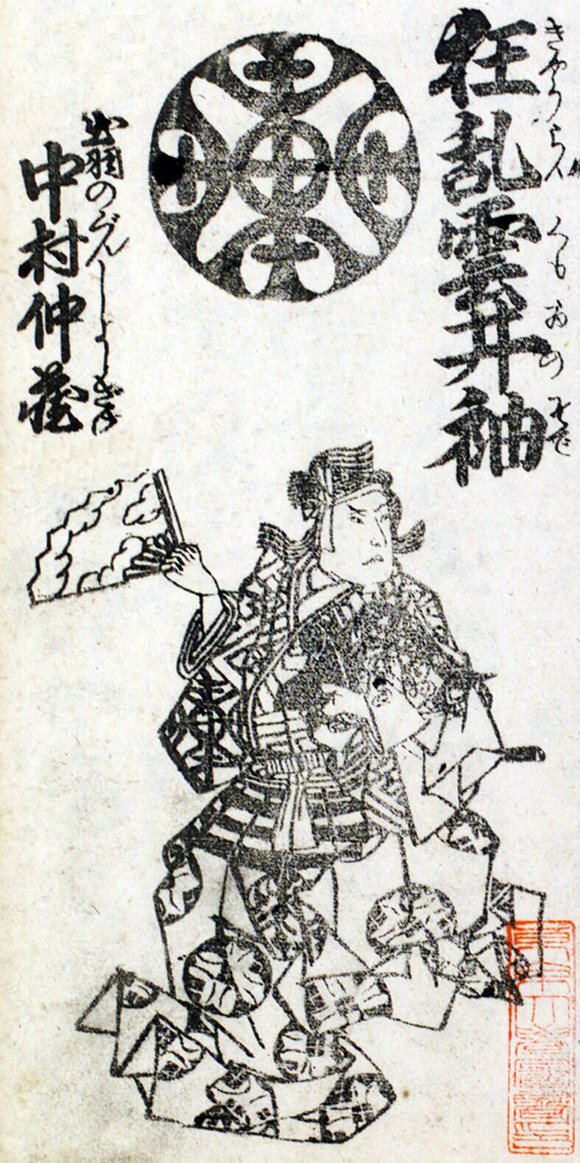 狂乱雲井袖
きやうらんくもゐのそで
出羽のぐんしよしざね
中村仲蔵